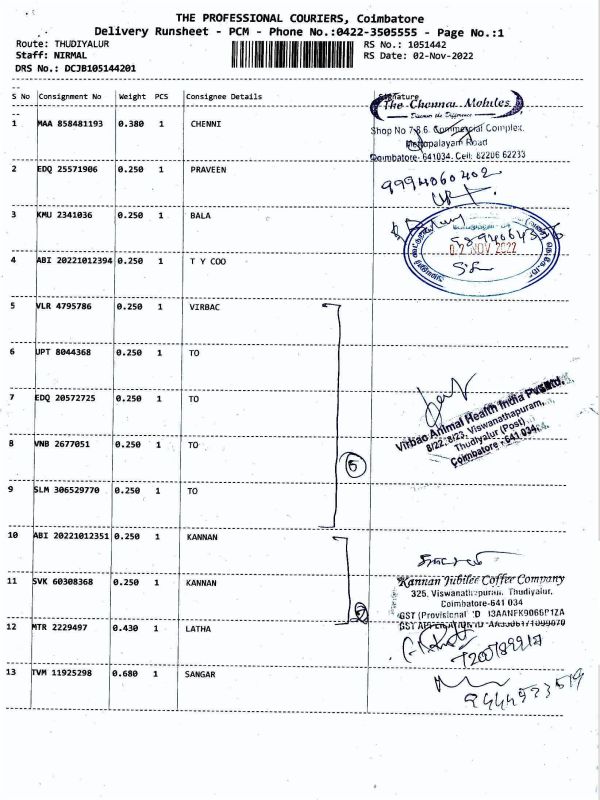 THE PROFESSIONAL COURIERS, Coimbatore
Delivery Runsheet - PCM - Phone No.:0422-3505555 - Page No.:1
Route: THUDIYALUR RS No.: 1051442
Staff: NIRMAL RS Date: 02-Nov-2022
DRS No.: DCJB105144201
S No Consignment No Weight PCS Consignee Details Signature
The Chennai Mobiles
1 MAA 858481193 0.380 1 CHENNI
Shop No 7&8. Commercial Complex.
Mettupalayam Road
Coimbatore- 641034. Cell: 82206 62233
2 EDQ 25571906 0.250 1 PRAVEEN
9994060402
3 KMU 2341036 0.250 1 BALA
02 NOV 2022
4 ABI 20221012394 0.250 1 T Y COO
5 VLR 4795786 0.250 1 VIRBAC
6 UPT 8044368 0.250 1 TO
7 EDQ 20572725 0.250 1 TO
Virbac Animal Health India Pvt Ltd.
8/22, 8/23, Viswanathapuram,
Thudiyalur (Post)
Coimbatore - 641 034.
8 VNB 2677051 0.250 1 TO
5
9 SLM 306529770 0.250 1 TO
10 ABI 20221012351 0.250 1 KANNAN
Kannan Jubilee Coffee Company
11 SVK 60308368 0.250 1 KANNAN
325, Viswanathapuram, Thudiyalur,
Coimbatore-641 034
2
12 MTR 2229497 0.430 1 LATHA
13 TVM 11925298 0.680 1 SANGAR